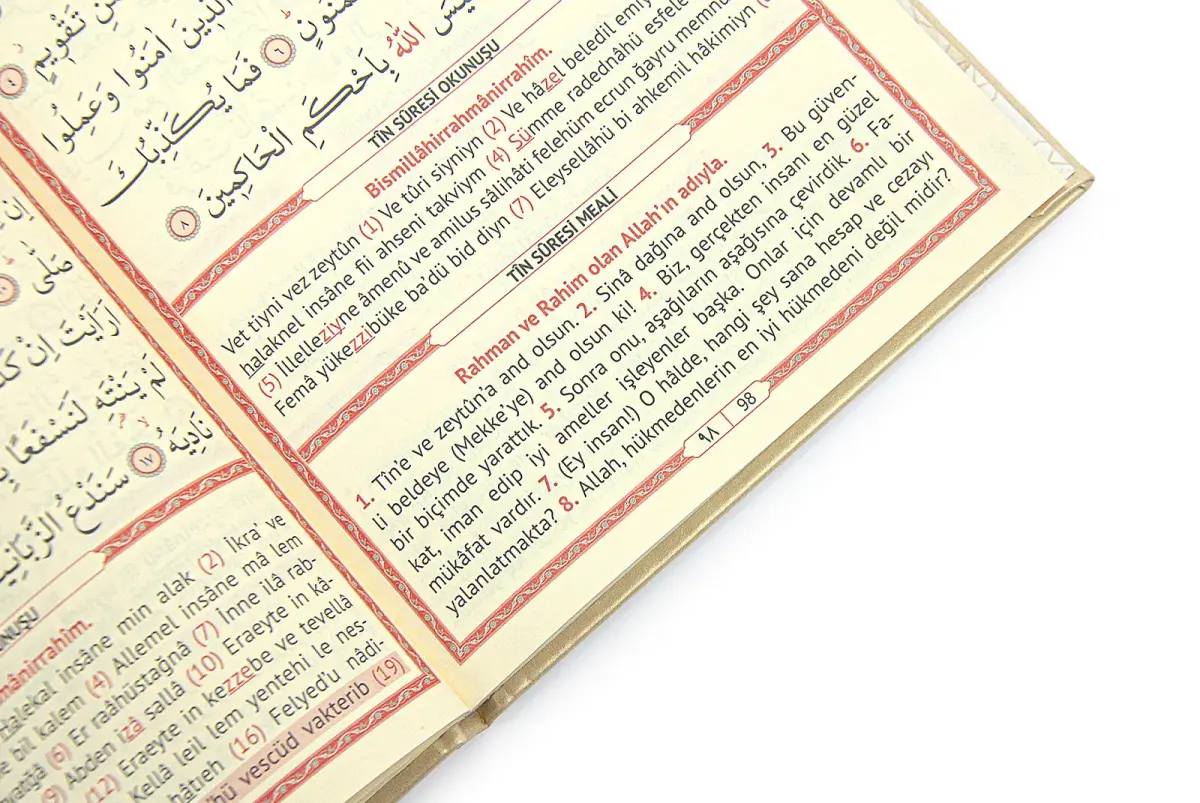 مِن تَقْوِيمٍ ٤
الَّذِينَ اٰمَنُوا وَعَمِلُوا
مَمْنُونٍ ٦ فَمَا يُكَذِّبُكَ
اللّٰهُ بِاَحْكَمِ الْحَاكِمِينَ ٨
TÎN SÛRESİ OKUNUŞU
Bismillâhirrahmânirrahîm.
Vet tiyni vez zeytûn (1) Ve tûri siyniyn (2) Ve hâzel beledil emiy
halaknel insâne fii ahseni takviym (4) Sümme radednâhü esfele
(5) İllelleziyne âmenû ve amilus sâlihâti felehüm ecrun ğayru memnu
Femâ yükezzibüke ba'dü bid diyn (7) Eleysellâhü bi ahkemil hâkimiyn
TÎN SÛRESİ MEALİ
Rahman ve Rahim olan Allah'ın adıyla.
1. Tîn'e ve zeytûn'a and olsun. 2. Sinâ dağına and olsun, 3. Bu güven-
li beldeye (Mekke'ye) and olsun ki! 4. Biz, gerçekten insanı en güzel
bir biçimde yarattık. 5. Sonra onu, aşağıların aşağısına çevirdik. 6. Fa-
kat, iman edip iyi ameller işleyenler başka. Onlar için devamlı bir
mükâfat vardır. 7. (Ey insan!) O hâlde, hangi şey sana hesap ve cezayı
yalanlatmakta? 8. Allah, hükmedenlerin en iyi hükmedeni değil midir?
٩٨ 98
اِنْ
صَلّٰى
اَرَاَيْتَ اِنْ
لَمْ يَنْتَهِ لَنَسْفَعًا
نَادِيَهُ ١٧ سَنَدْعُ الزَّبَانِيَ
UNUŞU
mânirrahîm.
Halekal insâne min alak (2) İkra' ve
bil kalem (4) Allemel insâne mâ lem
yatğâ (6) Er raâhüstağnâ (7) İnne ilâ rab-
(9) Abden izâ sallâ (10) Eraeyte in kâ-
(12) Eraeyte in kezzebe ve tevellâ
Kellâ leil lem yentehi le nes-
hâtıeh (16) Felyed'u nâdi-
hü vescüd vakterib (19)